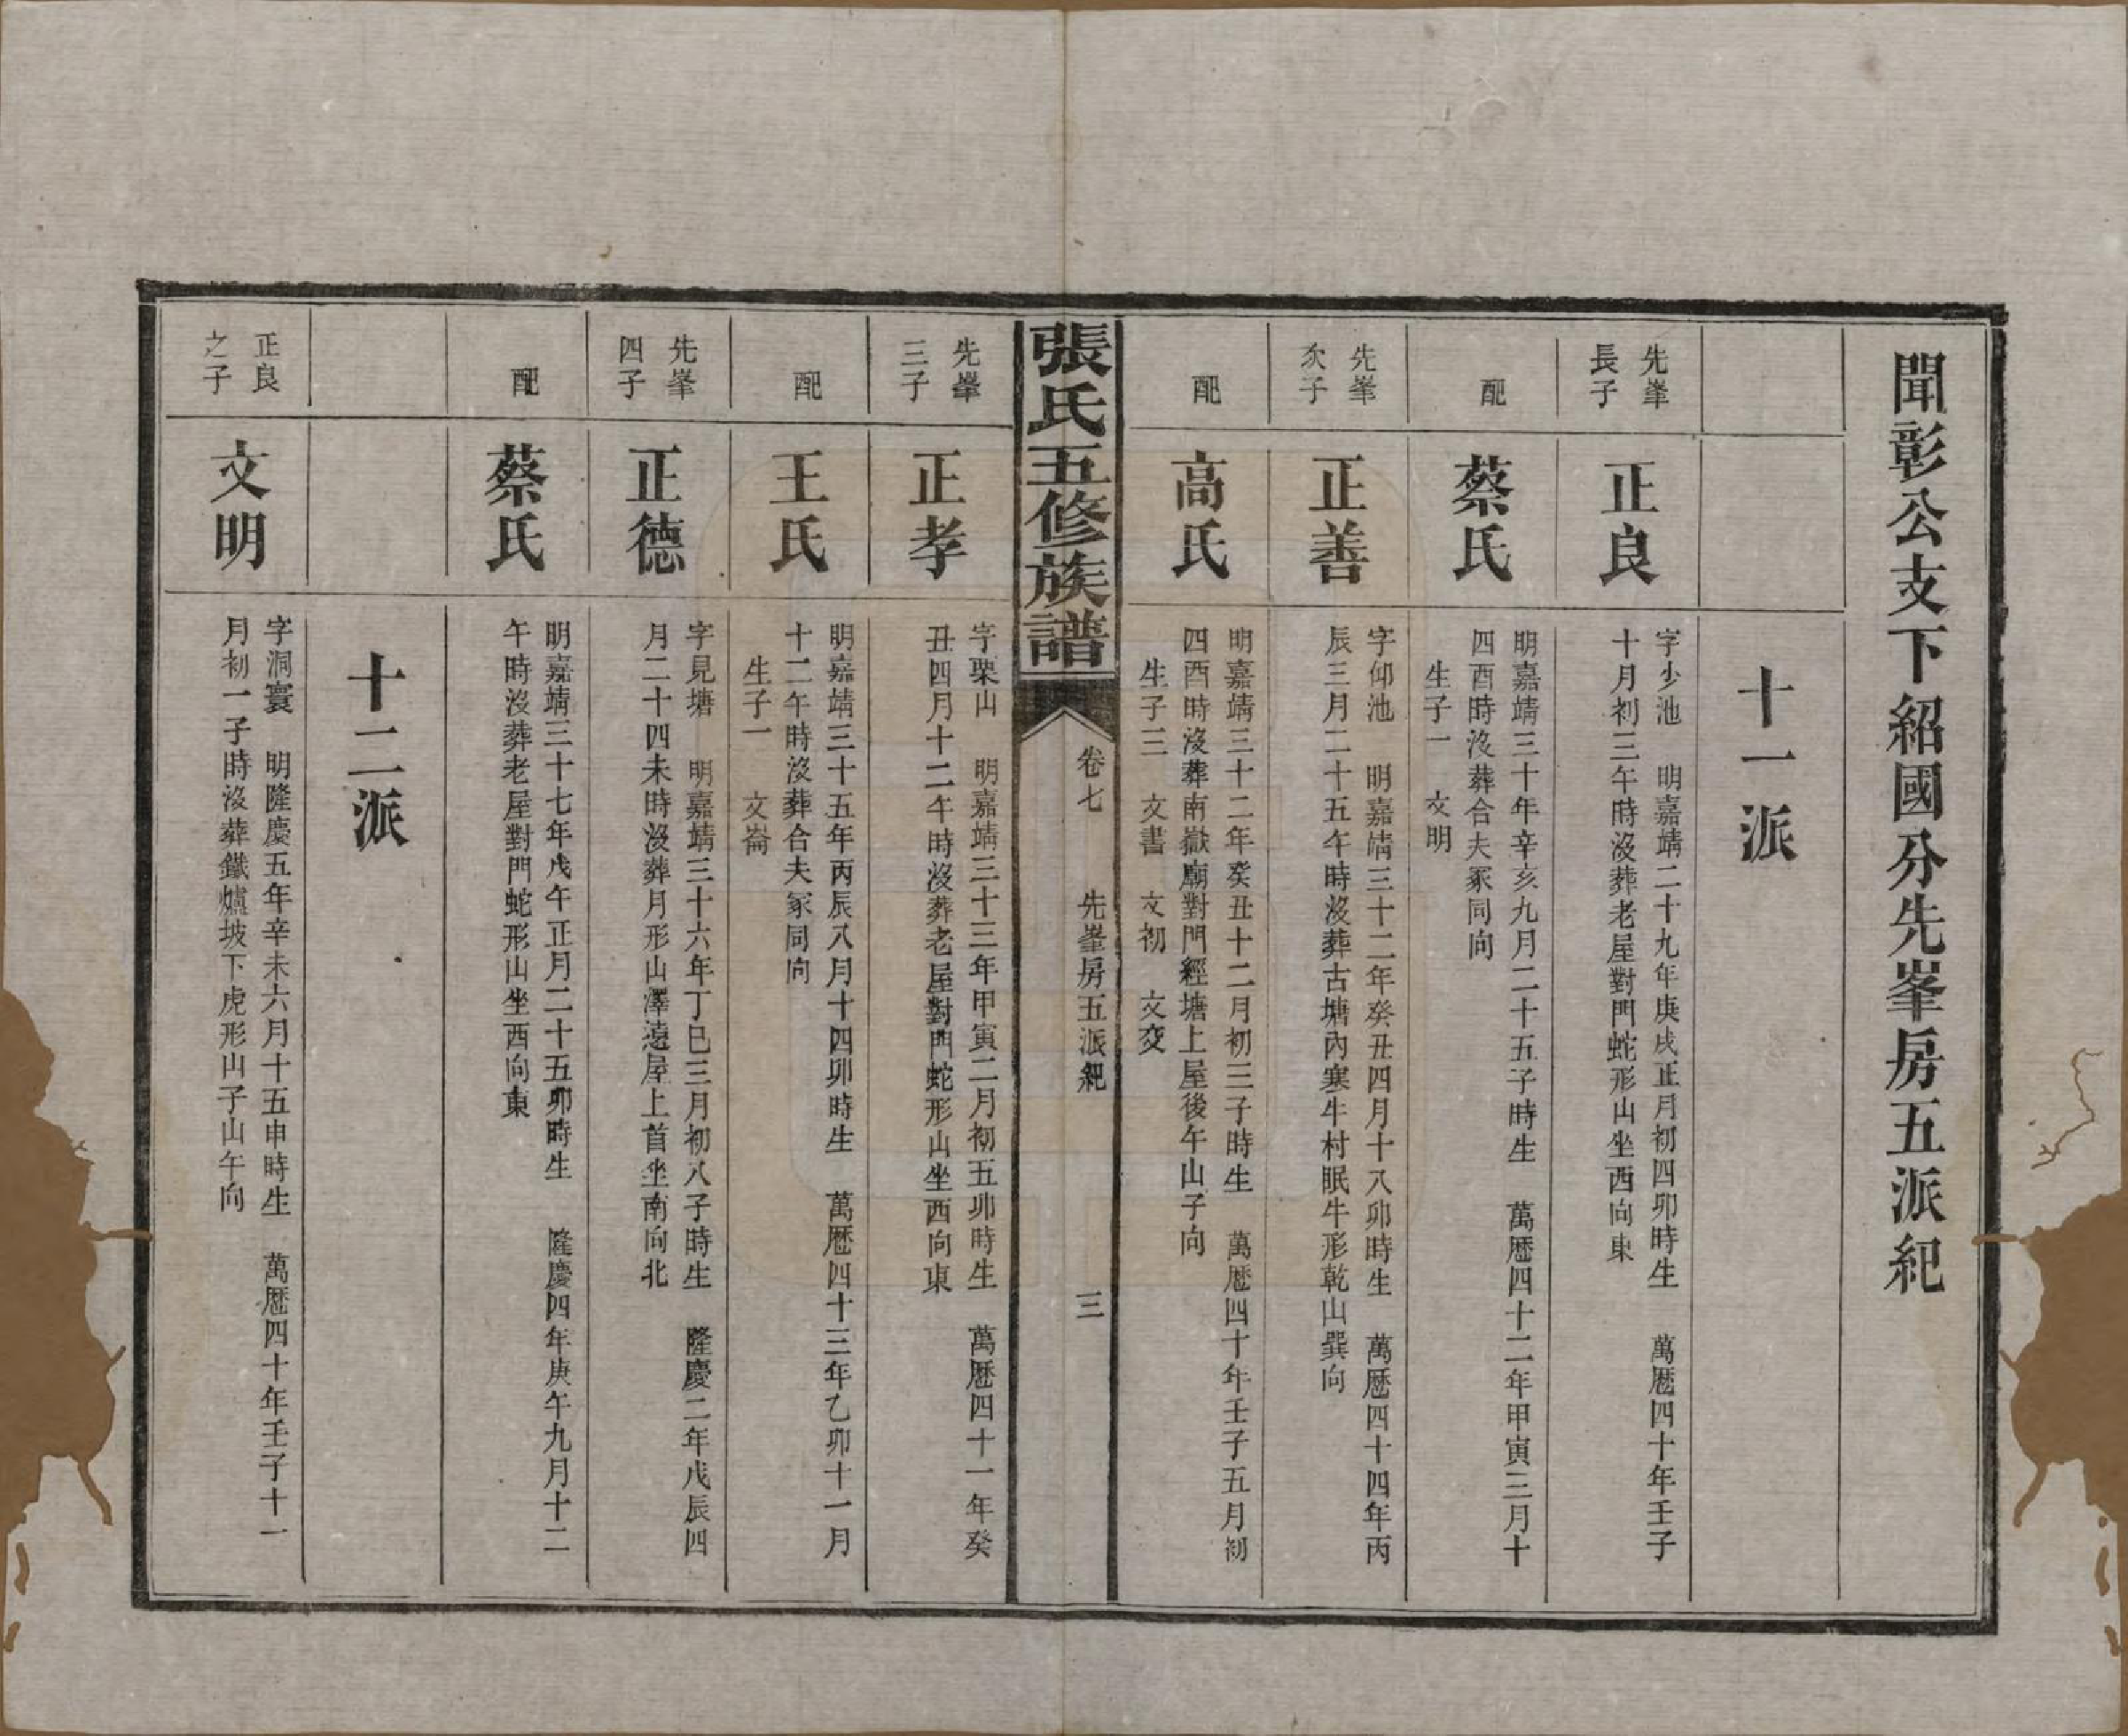 聞彰公支下紹國分先峯房五派紀
十一派
先峯
長子
正良
字少池　明嘉靖二十九年庚戌正月初四卯時生　萬曆四十年壬子
十月初三午時沒葬老屋對門蛇形山坐西向東
配
蔡氏
明嘉靖三十年辛亥九月二十五子時生　萬曆四十二年甲寅三月十
四酉時沒葬合夫冢同向
生子一　文明
先峯
次子
正善
字仰池　明嘉靖三十二年癸丑四月十八卯時生　萬曆四十四年丙
辰三月二十五午時沒葬古塘內寨牛村眠牛形乾山巽向
配
高氏
明嘉靖三十二年癸丑十二月初三子時生　萬曆四十年壬子五月初
四酉時沒葬南嶽廟對門經塘上屋後午山子向
生子三　文書　文初　文交
張氏五修族譜
卷七　先峯房五派紀　三
先峯
三子
正孝
字栗山　明嘉靖三十三年甲寅二月初五卯時生　萬曆四十一年癸
丑四月十二午時沒葬老屋對門蛇形山坐西向東
配
王氏
明嘉靖三十五年丙辰八月十四卯時生　萬曆四十三年乙卯十一月
十二午時沒葬合夫冢同向
生子一　文崙
先峯
四子
正德
字見塘　明嘉靖三十六年丁巳三月初八子時生　隆慶二年戊辰四
月二十四未時沒葬月形山澤遠屋上首坐南向北
配
蔡氏
明嘉靖三十七年戊午正月二十五卯時生　隆慶四年庚午九月十二
午時沒葬老屋對門蛇形山坐西向東
十二派
正良
之子
文明
字洞寰　明隆慶五年辛未六月十五申時生　萬曆四十年壬子十一
月初一子時沒葬鐵爐坡下虎形山子山午向